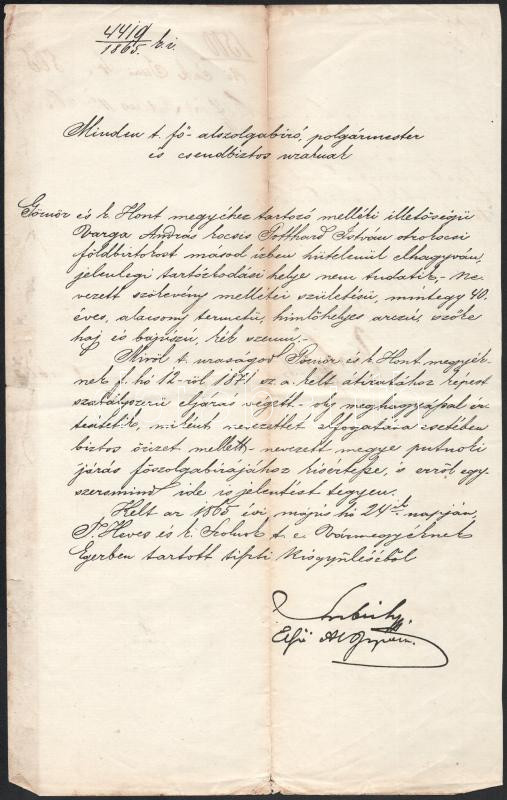 4419
1865. k. i.
Minden t. fő- alszolgabiró, polgármester
és csendbiztos uraknak
Gömör és k. Hont megyéhez tartozó melléti illetőségü
Varga András kocsis Potthard István otrokocsi
földbirtokost másod izben hütelenül elhagyván,
jelenlegi tartóztodási helye nem tudatik, - Ne-
vezett szökevény mellétei születésü, mintegy 40.
éves, alacsony termetü, himlőhelyes arczú, szőke
haj és bajuszu, kék szemü. -
Miről t. uraságod Gömör és k. Hont megyék-
nek f. hó 12-ről 1871 sz. a. kelt átiratához képest
szabályszerü eljárás végett - oly meghagyással ér-
tesitetik, miként nevezettet elfogatása esetében
biztos őrizet mellett - nevezett megye putnoki
járás főszolgabirájához kisértesse, és erről egy-
szersmind ide is jelentést tegyen.
Kelt az 1865 évi május hó 24-én napján,
T. Heves és k. Szolnok t. e. Vármegyéknek
Egerben tartott tiszti kisgyüléséből
Első Al